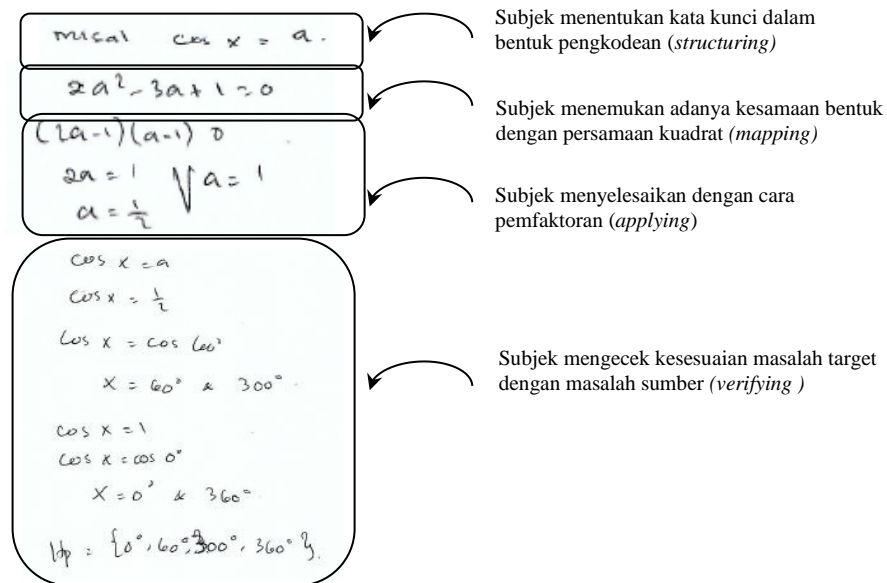 misal cos x = a.
Subjek menentukan kata kunci dalam
bentuk pengkodean (structuring)
2a² - 3a + 1 = 0
Subjek menemukan adanya kesamaan bentuk
dengan persamaan kuadrat (mapping)
(2a-1)(a-1) 0
2a = 1 V a = 1
a = 1/2
Subjek menyelesaikan dengan cara
pemfaktoran (applying)
cos x = a
cos x = 1/2
cos x = cos 60°
x = 60° & 300°.
Subjek mengecek kesesuaian masalah target
dengan masalah sumber (verifying )
cos x = 1
cos x = cos 0°
x = 0° & 360°
Hp = {0°, 60°, 300°, 360°}.